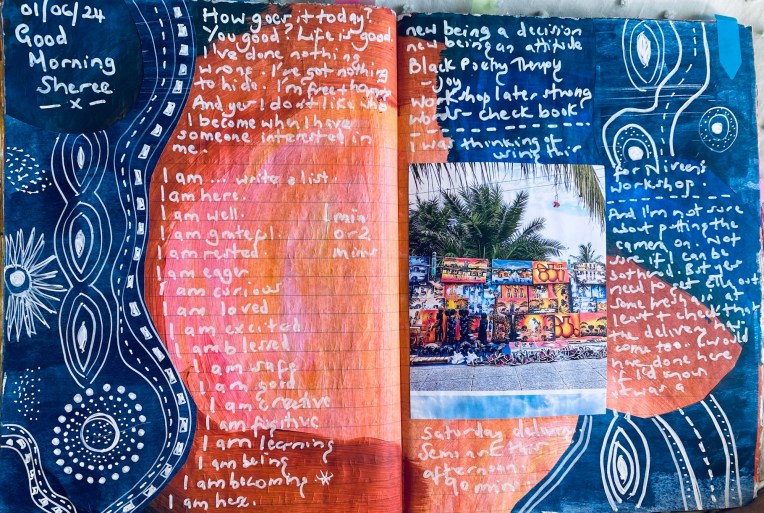 01/06/24
Good
Morning
Sheree
x
How goes it today?
You good? Life is good.
I've done nothing
wrong. I've got nothing
to hide. I'm free + happy
And yes I don't like who
I become when I have
someone interested in
me.
I am ... write a list.
I am here.
I am well.
I am grateful.
I am rested.
I am eager
I am curious
I am loved
I am excited
I am blessed
I am safe
I am good
I am creative
I am fugitive
I am learning
I am being
I am becoming *
I am hex.
1 min
or 2
mins
new being a decision
new being an attitude
Black Poetry Therapy
- Joy
Workshop later strong
words - check book
I was thinking of
using this
for Niveen's
workshop.
And I'm not sure
about putting the
camera on. Not
sure if I can be
bothered. But yes
need to get Elly out
some fresh air at
least + check that
the delivery has
come too. I would
have done here
if I'd known
it was a
Saturday delivery
Seminar this
afternoon.
90 min